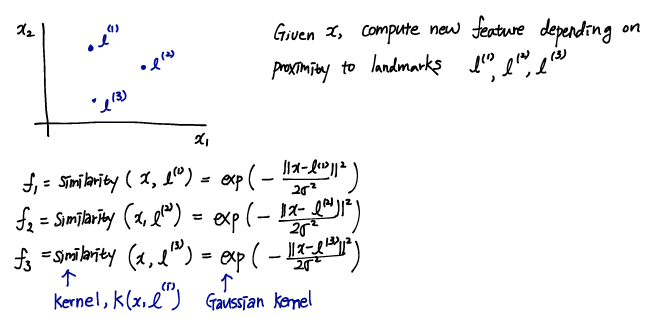 x₂
l⁽¹⁾
l⁽²⁾
l⁽³⁾
x₁
Given x, compute new feature depending on
proximity to landmarks l⁽¹⁾, l⁽²⁾, l⁽³⁾
f₁ = similarity (x, l⁽¹⁾) = exp(- ||x-l⁽¹⁾||² / 2σ²)
f₂ = similarity (x, l⁽²⁾) = exp(- ||x-l⁽²⁾||² / 2σ²)
f₃ = similarity (x, l⁽³⁾) = exp(- ||x-l⁽³⁾||² / 2σ²)
↑ ↑
kernel, k(x, l⁽ⁱ⁾) Gaussian kernel